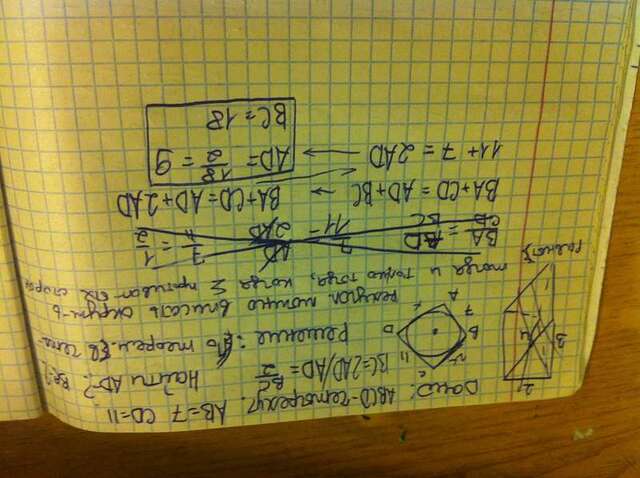 Дано: ABCD-четырехуг. AB=7 CD=11
BC=2AD/AD=BC/2 Найти AD-? BC-?
Решение: По теореме: В четы-
рехугол. можно вписать окружн-ь
тогда и только тогда, когда Σ противоп. сторон
равны
BA/CD = AD/BC 7/11 = AD/2AD 7/11 = 1/2
BA+CD=AD+BC → BA+CD=AD+2AD
11+7=2AD → AD=18/2=9
BC=18
B
A
D
C
7
11